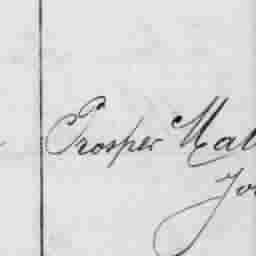 Prosper Mal
Jo